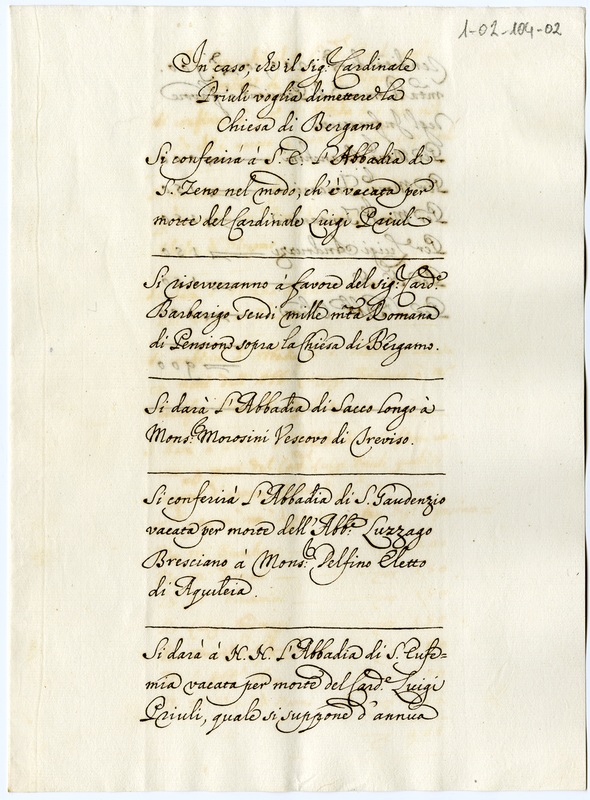 1-02-104-02
In caso, che il sig.r Cardinale
Priuli voglia dimettere la
Chiesa di Bergamo
Si conferirà à S. E. l'Abbadia di
S. Zeno nel modo, ch'è vacata per
morte del Cardinale Luigi Priuli
Si riserveranno à favore del sig.r Card.e
Barbarigo scudi mille mta Romana
di Pensione sopra la Chiesa di Bergamo.
Si darà l'Abbadia di Sacco longo à
Mons.r Morosini Vescovo di Treviso.
Si conferirà l'Abbadia di S. Gaudenzio
vacata per morte dell'Abb.e Luzzago
Bresciano à Mons.r Delfino Eletto
di Aquileia.
Si darà à N. N. l'Abbadia di S. Eufe=
mia vacata per morte del Card.e Luigi
Priuli, quale si suppone d'annua